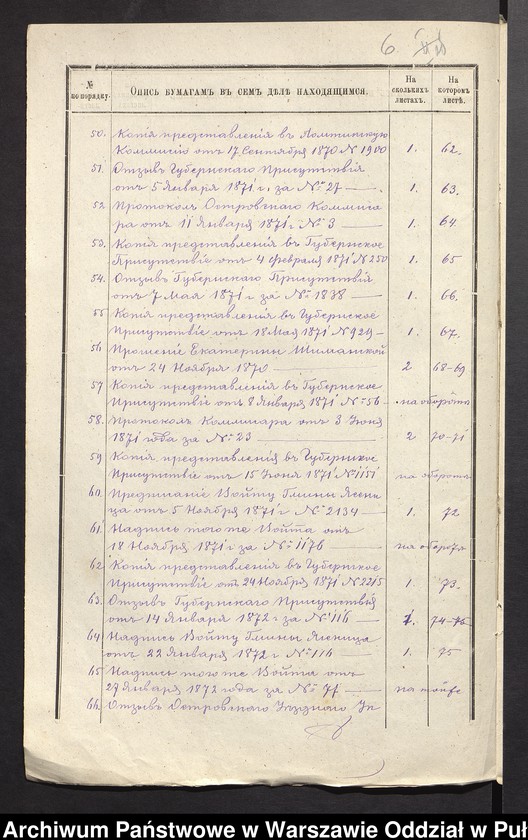 6.
№ по порядку.
Опись бумагамъ въ семъ дѣлѣ находящимся.
На сколькихъ листахъ.
На которомъ листѣ.
50. Копія представленія въ Ломжинскую
Коммисію отъ 17 Сентября 1870 № 1900 1. 62.
51. Отзывъ Губернскаго Присутствія
отъ 5 Января 1871 г. за № 27 — 1. 63.
52. Протоколъ Островскаго Коммиса
ра отъ 11 Января 1871 г № 3 — 1. 64.
53. Копія представленія въ Губернское
Присутствіе отъ 4 Февраля 1871 № 250 1. 65
54. Отзывъ Губернскаго Присутствія
отъ 7 Мая 1871 г за № 1838 — 1. 66.
55 Копія представленія въ Губернское
Присутствіе отъ 18 Мая 1871 № 929 — 1. 67.
56 Прошеніе Екатерины Шиманской
отъ 24 Ноября 1870 — 2 68-69
57 Копія представленія въ Губернское
Присутствіе отъ 8 Января 1871 № 56 — на оборотѣ
58. Протоколъ Коммисара отъ 3 Іюня
1871 года за № 23 — 2 70-71
59 Копія представленія въ Губернское
Присутствіе отъ 15 Іюня 1871 № 1151 на оборотѣ
60. Предписаніе Войту Гмины Ясени
ца отъ 5 Ноября 1871 г № 2134 — 1. 72
61. Надпись того же Войта отъ
18 Ноября 1871 г за № 1176 — на оборотѣ
62. Копія представленія въ Губернское
Присутствіе отъ 24 Ноября 1871 № 2215 1. 73.
63. Отзывъ Губернскаго Присутствія
отъ 14 Января 1872 г за № 116 — 1. 74-75
64 Надпись Войту Гмины Ясеница
отъ 22 Января 1872 г № 116 — 1. 75
65 Надпись того же Войта отъ
29 Января 1872 года за № 77 — на
66. Отзывъ Островскаго Уѣзднаго Уп
Archiwum Państwowe w Warszawie Oddział w Puł